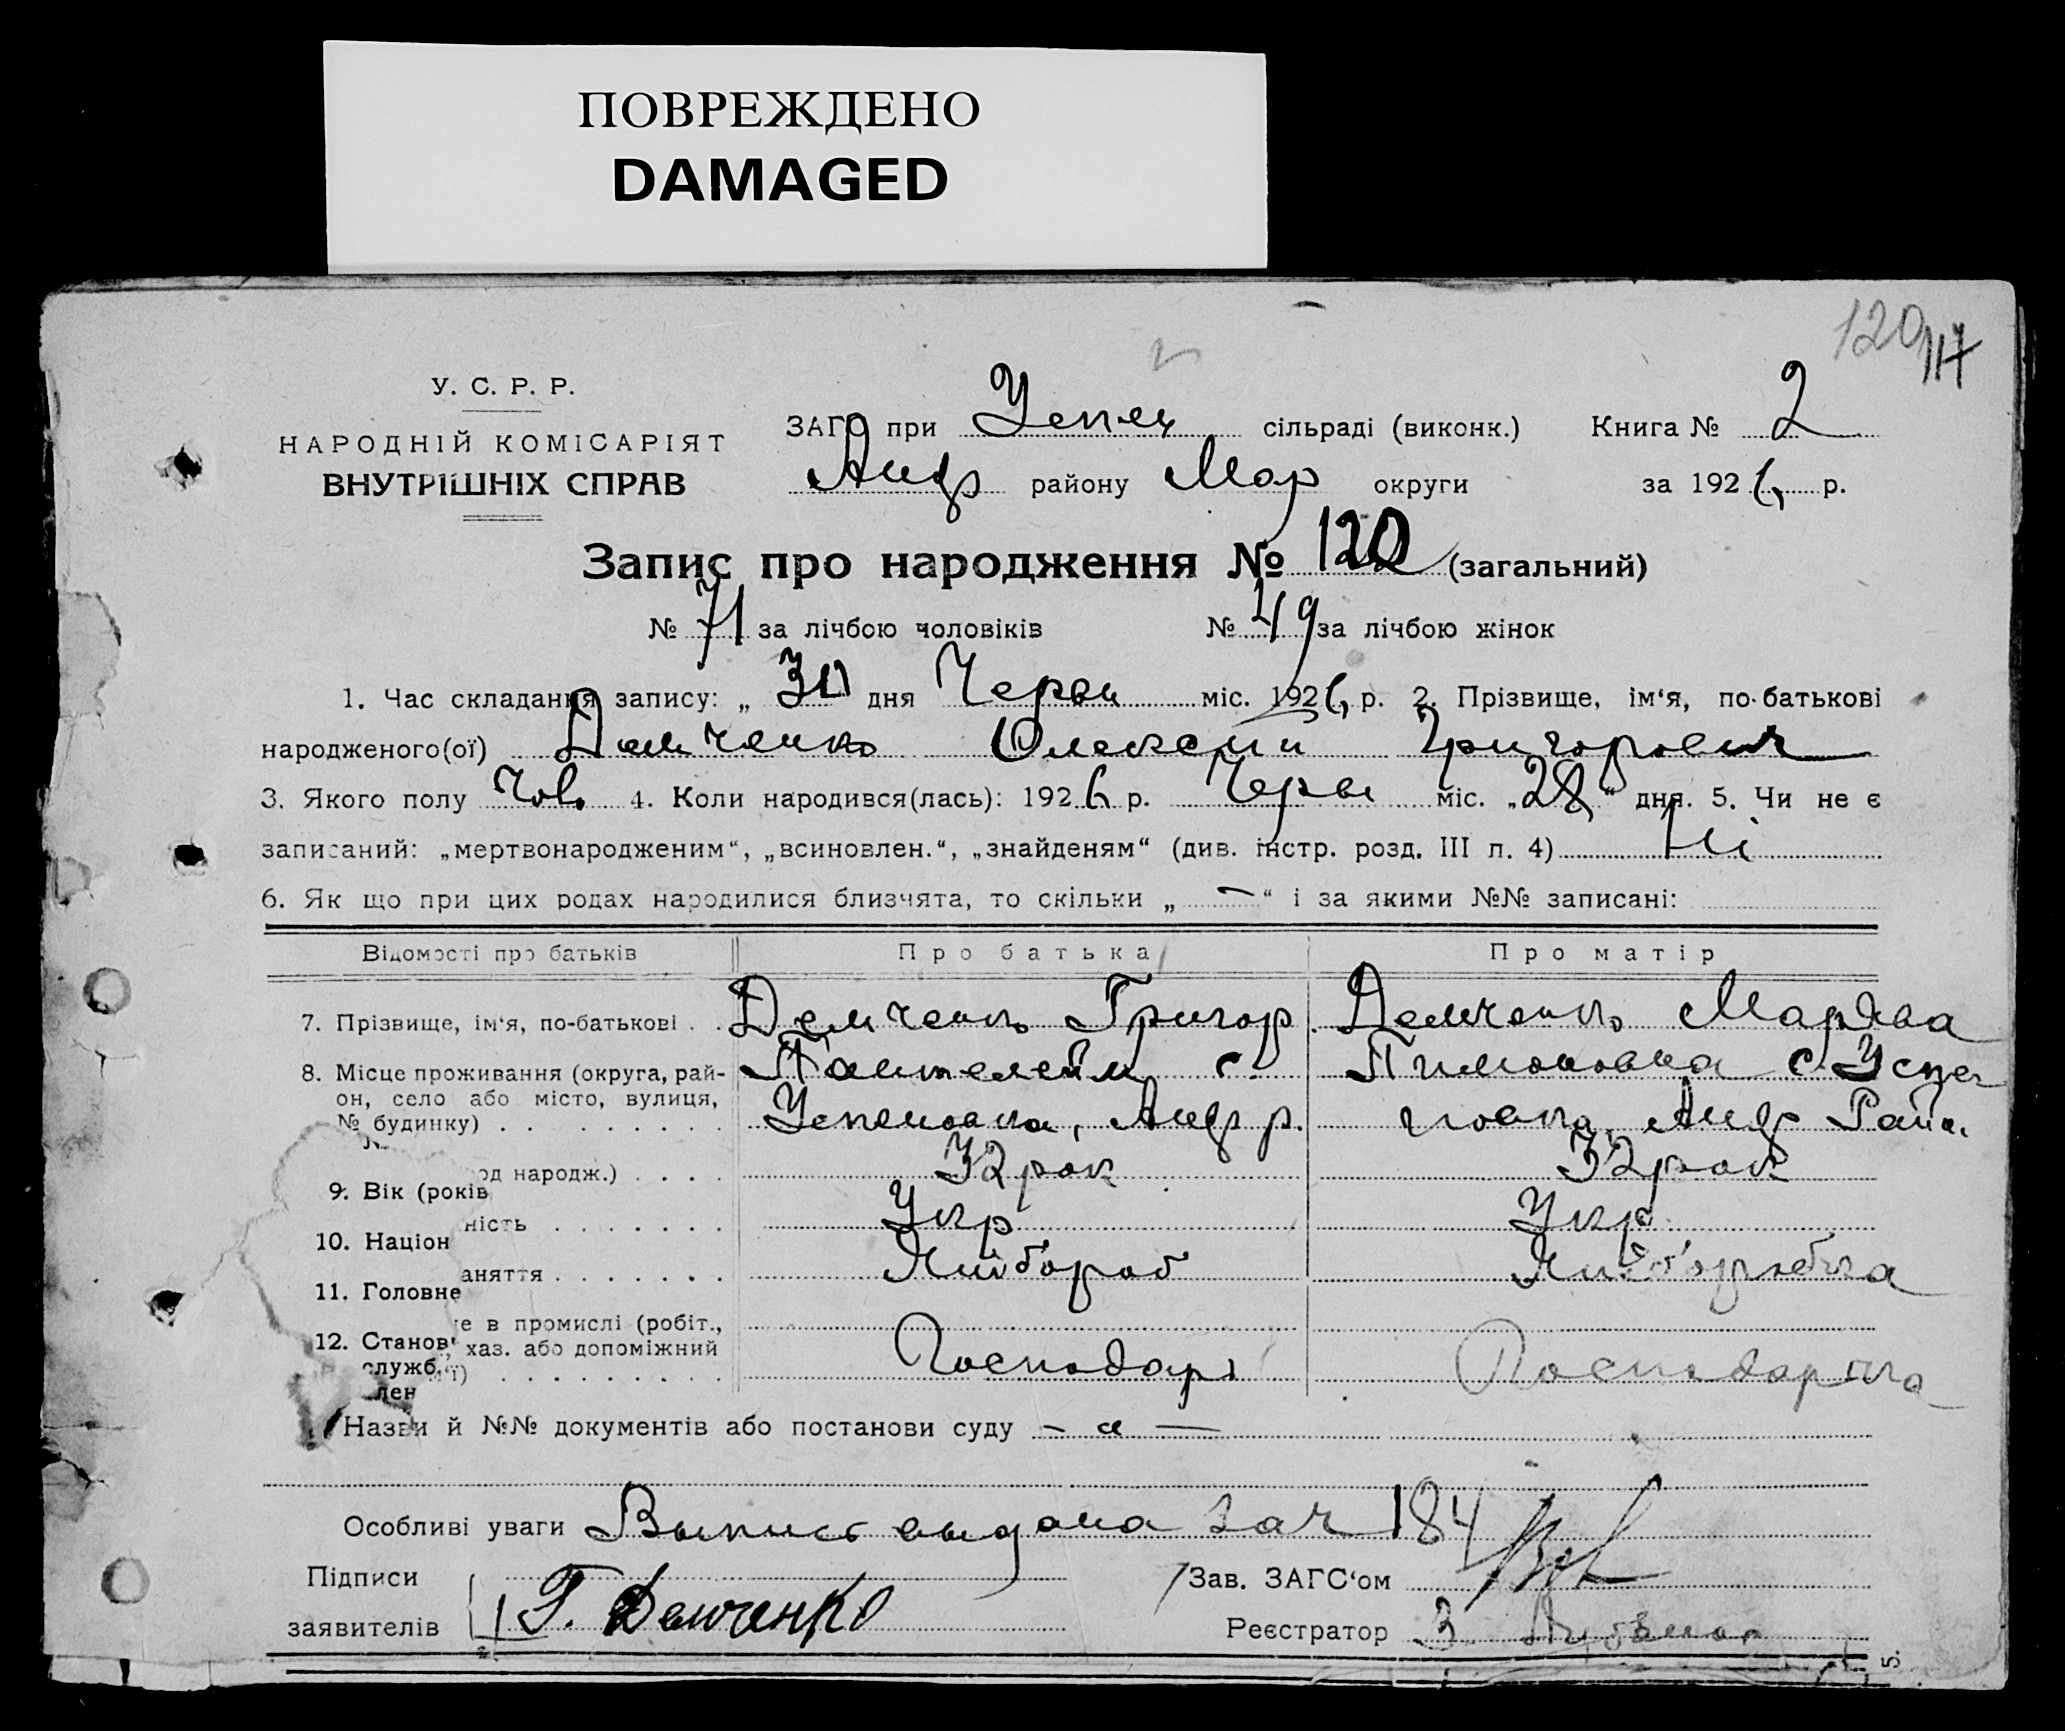 ПОВРЕЖДЕНО
DAMAGED
120 117
У. С. Р. Р.
НАРОДНІЙ КОМІСАРІЯТ
ВНУТРІШНІХ СПРАВ
ЗАГС при Успен сільраді (виконк.) Книга № 2
Андр району Мар округи за 1926 р.
Запис про народження № 120 (загальний)
№ 71 за лічбою чоловіків № 49 за лічбою жінок
1. Час складання запису: „ 30 дня Червн міс. 1926 р. 2. Прізвище, ім‘я, по-батькові
народженого(ої) Демченко Олексій Григорович
3. Якого полу Чов. 4. Коли народився(лась): 1926 р. Черв міс. „28“ дня. 5. Чи не є
записаний: „мертвонародженим“, „всиновлен.“, „знайденям“ (див. інстр. розд. III п. 4) Ні
6. Як що при цих родах народилися близчята, то скільки „ — “ і за якими №№ записані:
Відомості про батьків Про батька Про матір
7. Прізвище, ім‘я, по-батькові . . Демченко Григор Демченко Мар
8. Місце проживання (округа, рай- Пантелейм с. Пимоновна с. Успе
он, село або місто, вулиця, Успеновка, Андр р. новка, Андр Рай.
№ будинку) . . . . . . . . .
9. Вік (років од народж.) . . . . 32 рок 32 рок
10. Націон ність . . . . . . . Укр Укр
11. Головне аняття . . . . . . . Хлібороб Хліборобка
12. Станов е в промислі (робіт.,
служб. хаз. або допоміжний Господар Господарка
лен ї) . . . . . . . . .
Назви й №№ документів або постанови суду —
Особливі уваги Выпись выдана за № 184
Підписи
заявителів 1 Г. Демченко
Зав. ЗАГС‘ом
Реєстратор З
5.